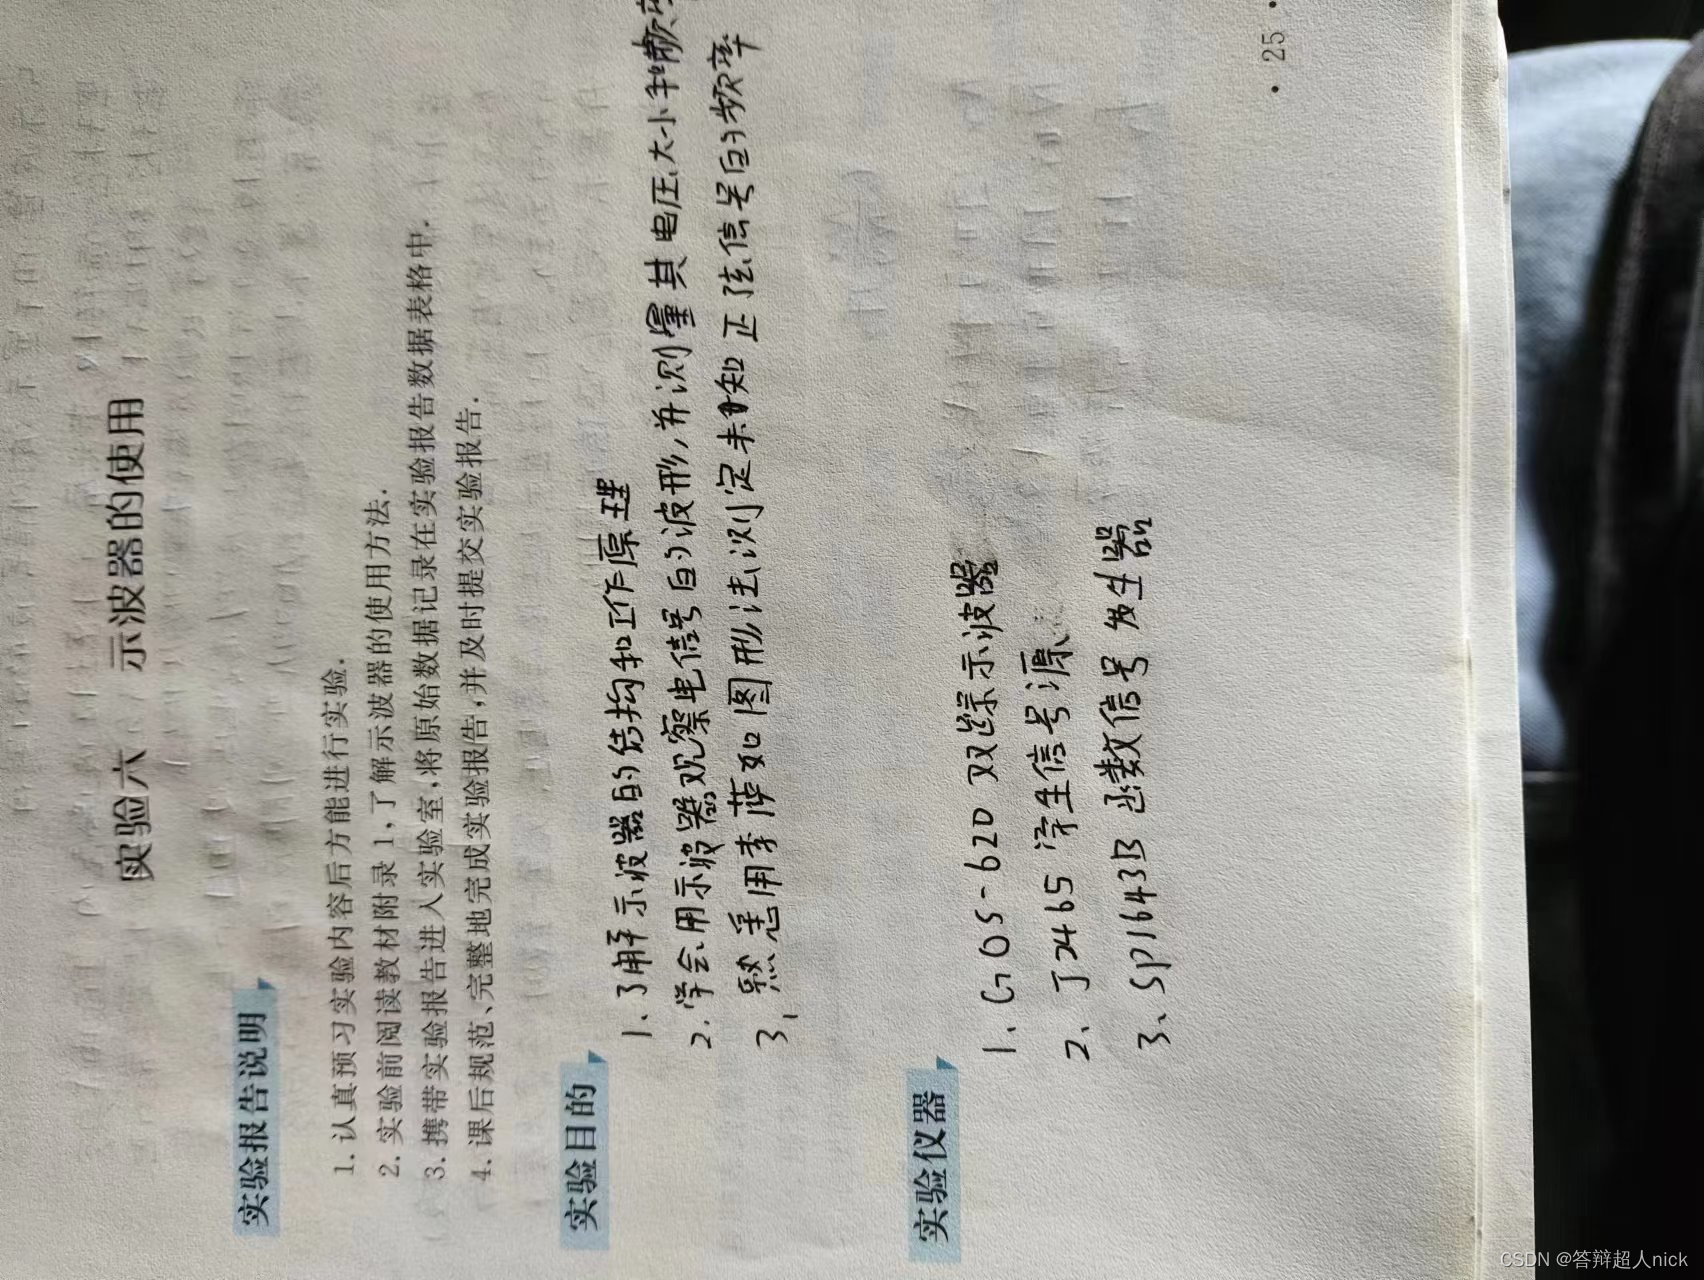 实验六 示波器的使用
实验报告说明
1. 认真预习实验内容后方能进行实验.
2. 实验前阅读教材附录 1,了解示波器的使用方法.
3. 携带实验报告进入实验室,将原始数据记录在实验报告数据表格中.
4. 课后规范、完整地完成实验报告,并及时提交实验报告.
实验目的
1. 了解示波器的结构和工作原理
2. 学会用示波器观察电信号的波形,并测量其电压大小和频率
3. 熟悉用李萨如图形法测定未知正弦信号的频率
实验仪器
1、GOS-620 双踪示波器
2、J2465 学生信号源
3、SP1643B 函数信号发生器
· 25 ·
CSDN @答辩超人nick